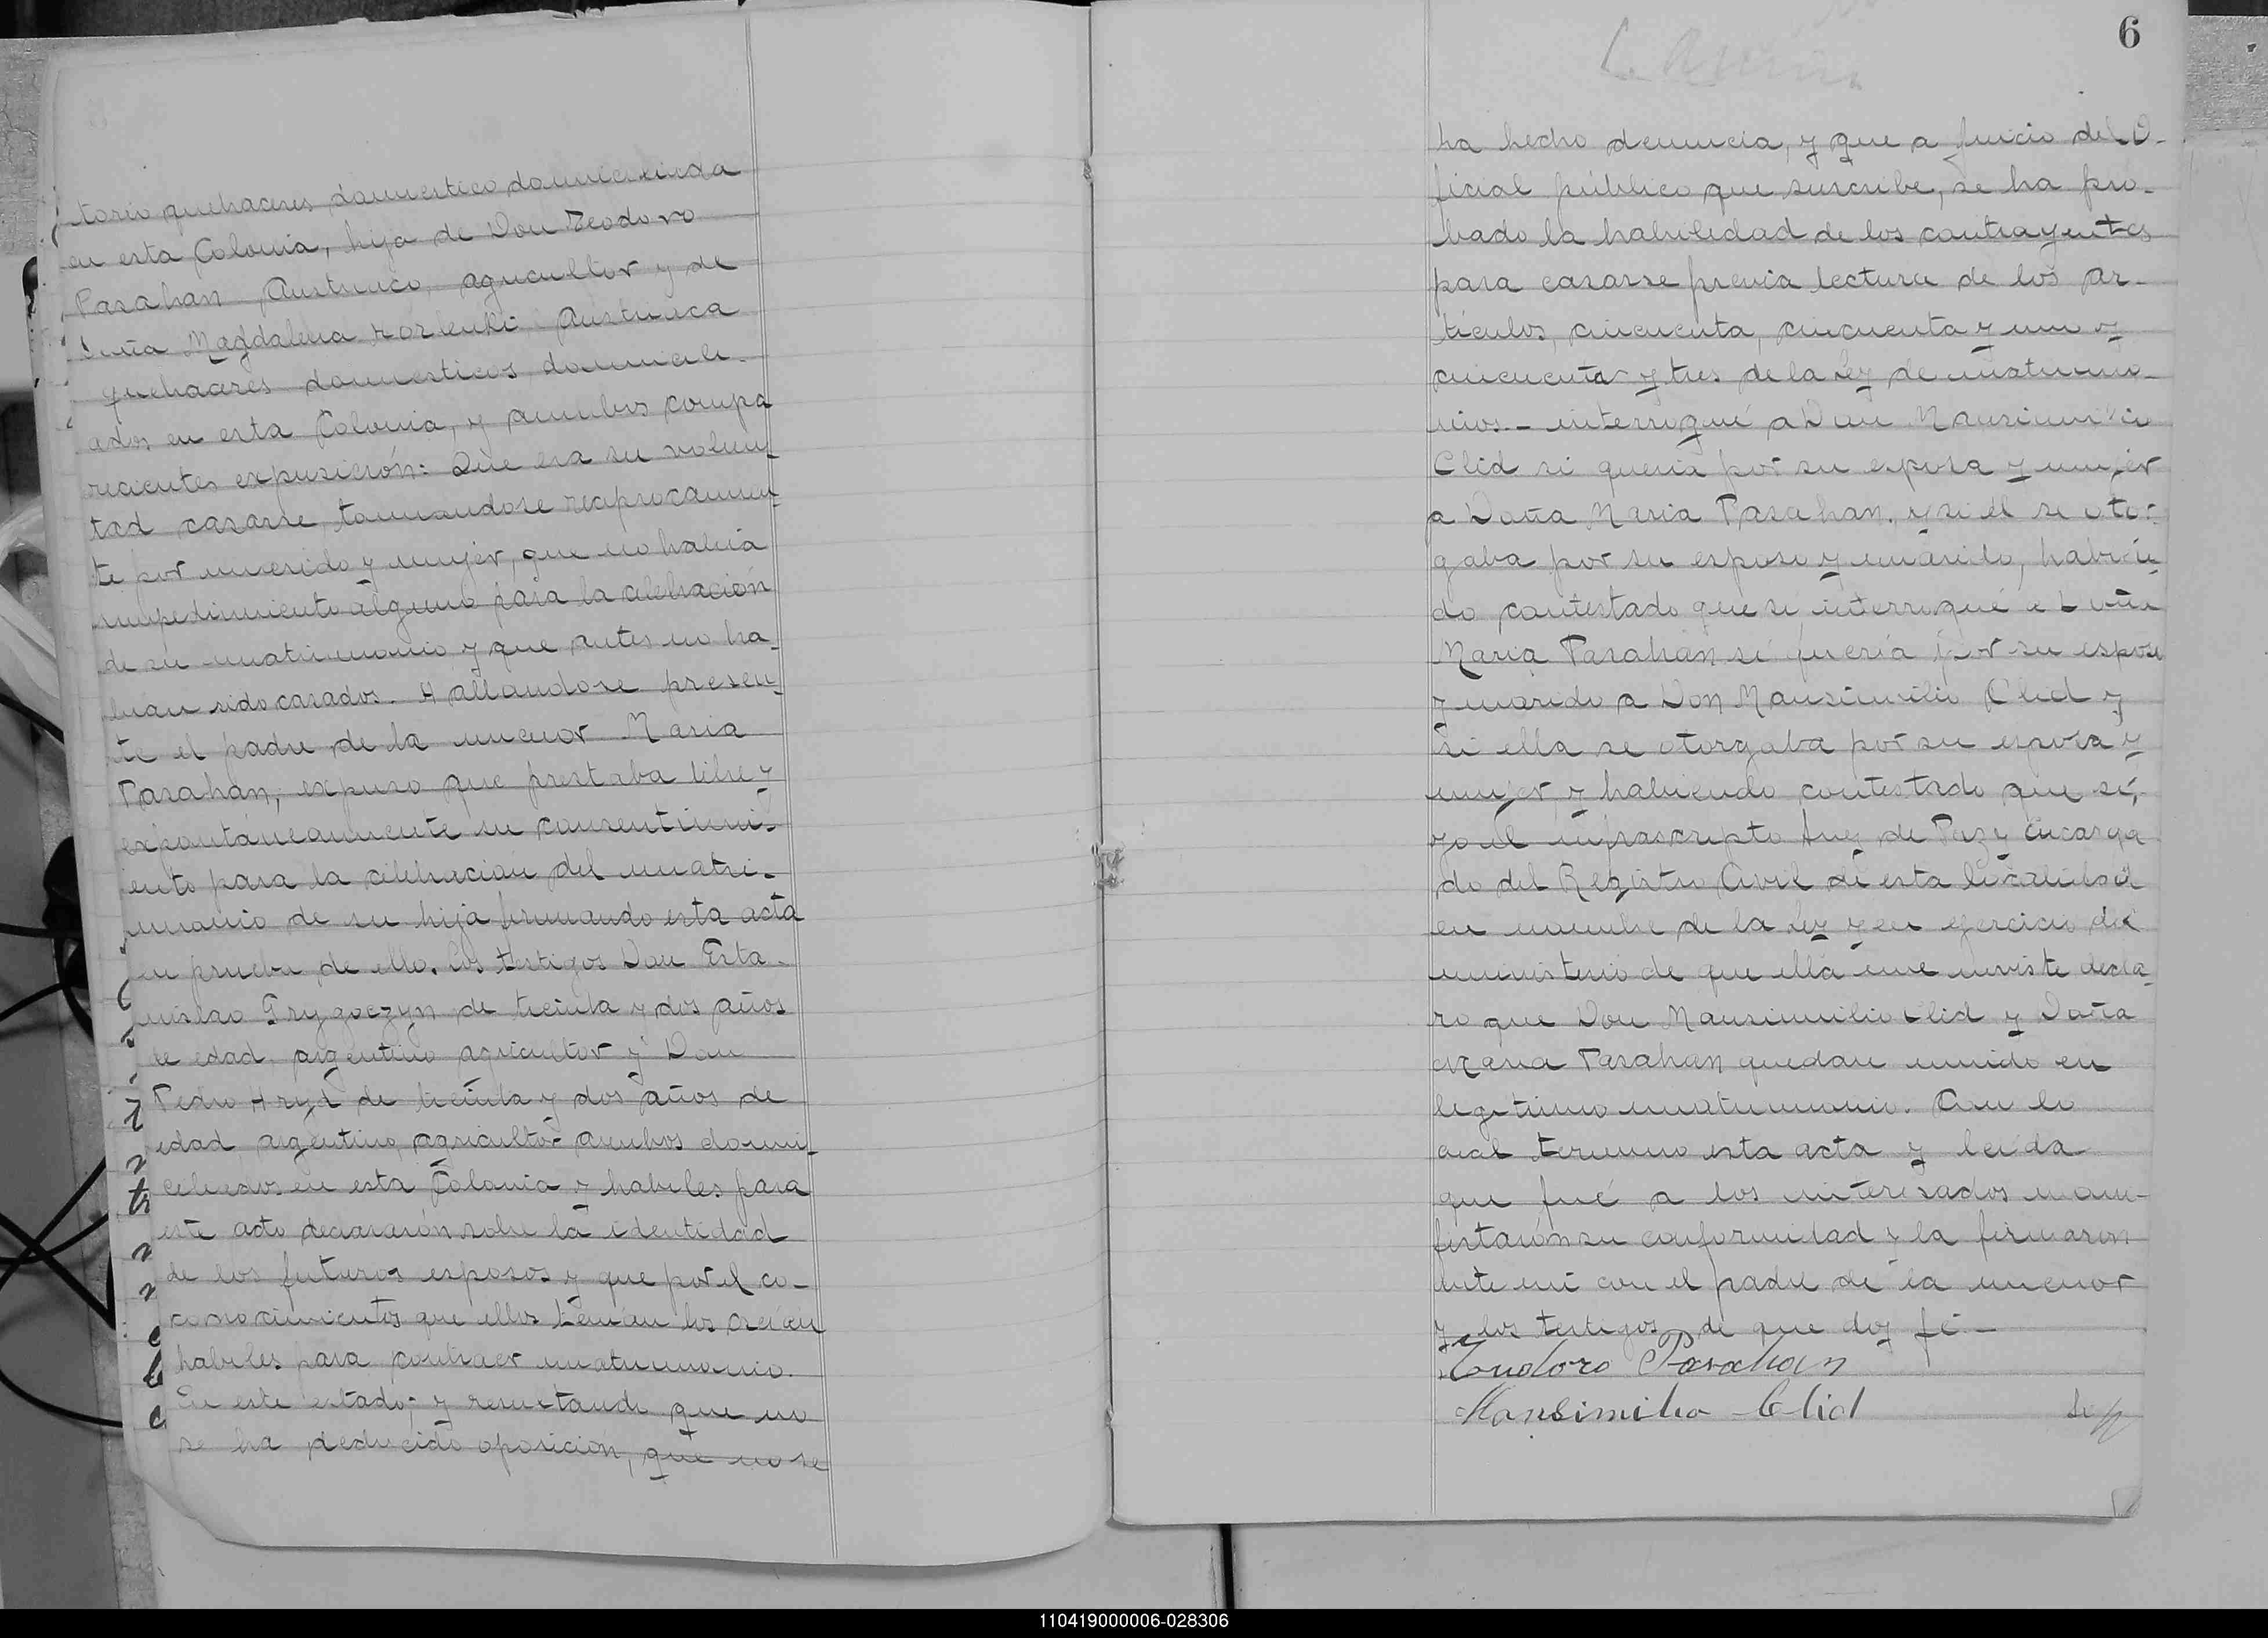 torio quehaceres domestico domiciliada
en esta Colonia, hija de Don Teodoro
Parahan Austriaco, agricultor y de
Doña Magdalena Austriaca
quehaceres domesticos, domicili-
ados en esta Colonia, y ambos compa
recientes expusición: Que era su volun-
tad casarse, tomandose reciprocamen-
te por marido y mujer, que no habia
impedimiento alguno para la celebración
de su matrimonio y que antes no ha-
bian sido casados. Hallandose presen-
te el padre de la menor Maria
Parahan; expuso que prestaba libre y
expontáneamente su consentimi-
ento para la celebracion del matri-
monio de su hija firmando esta acta
en prueba de ello. Los testigos Don Esta-
nislao Grygoczyn de treinta y dos años
de edad, argentino agricultor y Don
Pedro Hryd de treinta y dos años de
edad, argentino, agricultor ambos domi-
ciliados en esta Colonia y habiles para
este acto declararón sobre la identidad
de los futuros esposos y que por el co-
conocimientos que ellos tenían los creían
habiles para contraer matrimonio.
En este estado; y resultando que no
se ha deducido oposicion, que no se
6
ha hecho denuncia, y que a juicio del O-
ficial público que suscribe, se ha pro-
bado la habilidad de los contrayentes
para casarse previa lectura de los ar-
tículos, cincuenta, cincuenta y uno y
cincuenta y tres de la Ley de matrimo-
nios.- interrogué a Don Mansimilio
Clid si queria por su esposa y mujer
a Doña Maria Parahan, y si él se otor-
gaba por su esposo y marido, habién-
do contestado que si, interrogué a Doña
Maria Parahan si quería por su esposo
y marido a Don Mansimilio Clid y
si ella se otorgaba por su esposa y
mujer y habiendo contestado que sí,
yo el infrascripto Juez de Paz y Encarga
do del Registro Civil de esta localidad
en nombre de la Ley y en ejercicio del
ministerio de que ella me inviste decla-
ro que Don Mansimilio Clid y Doña
Maria Parahan quedan unido en
legitimo matrimonio. Con lo
cual termino esta acta y leída
que fué a los interesados mani-
festarón su conformidad y la firmaron
ante mi con el padre de la menor
y los testigos de que doy fé-
Teodoro Parahan
Mansimilio Clid
110419000006-028306